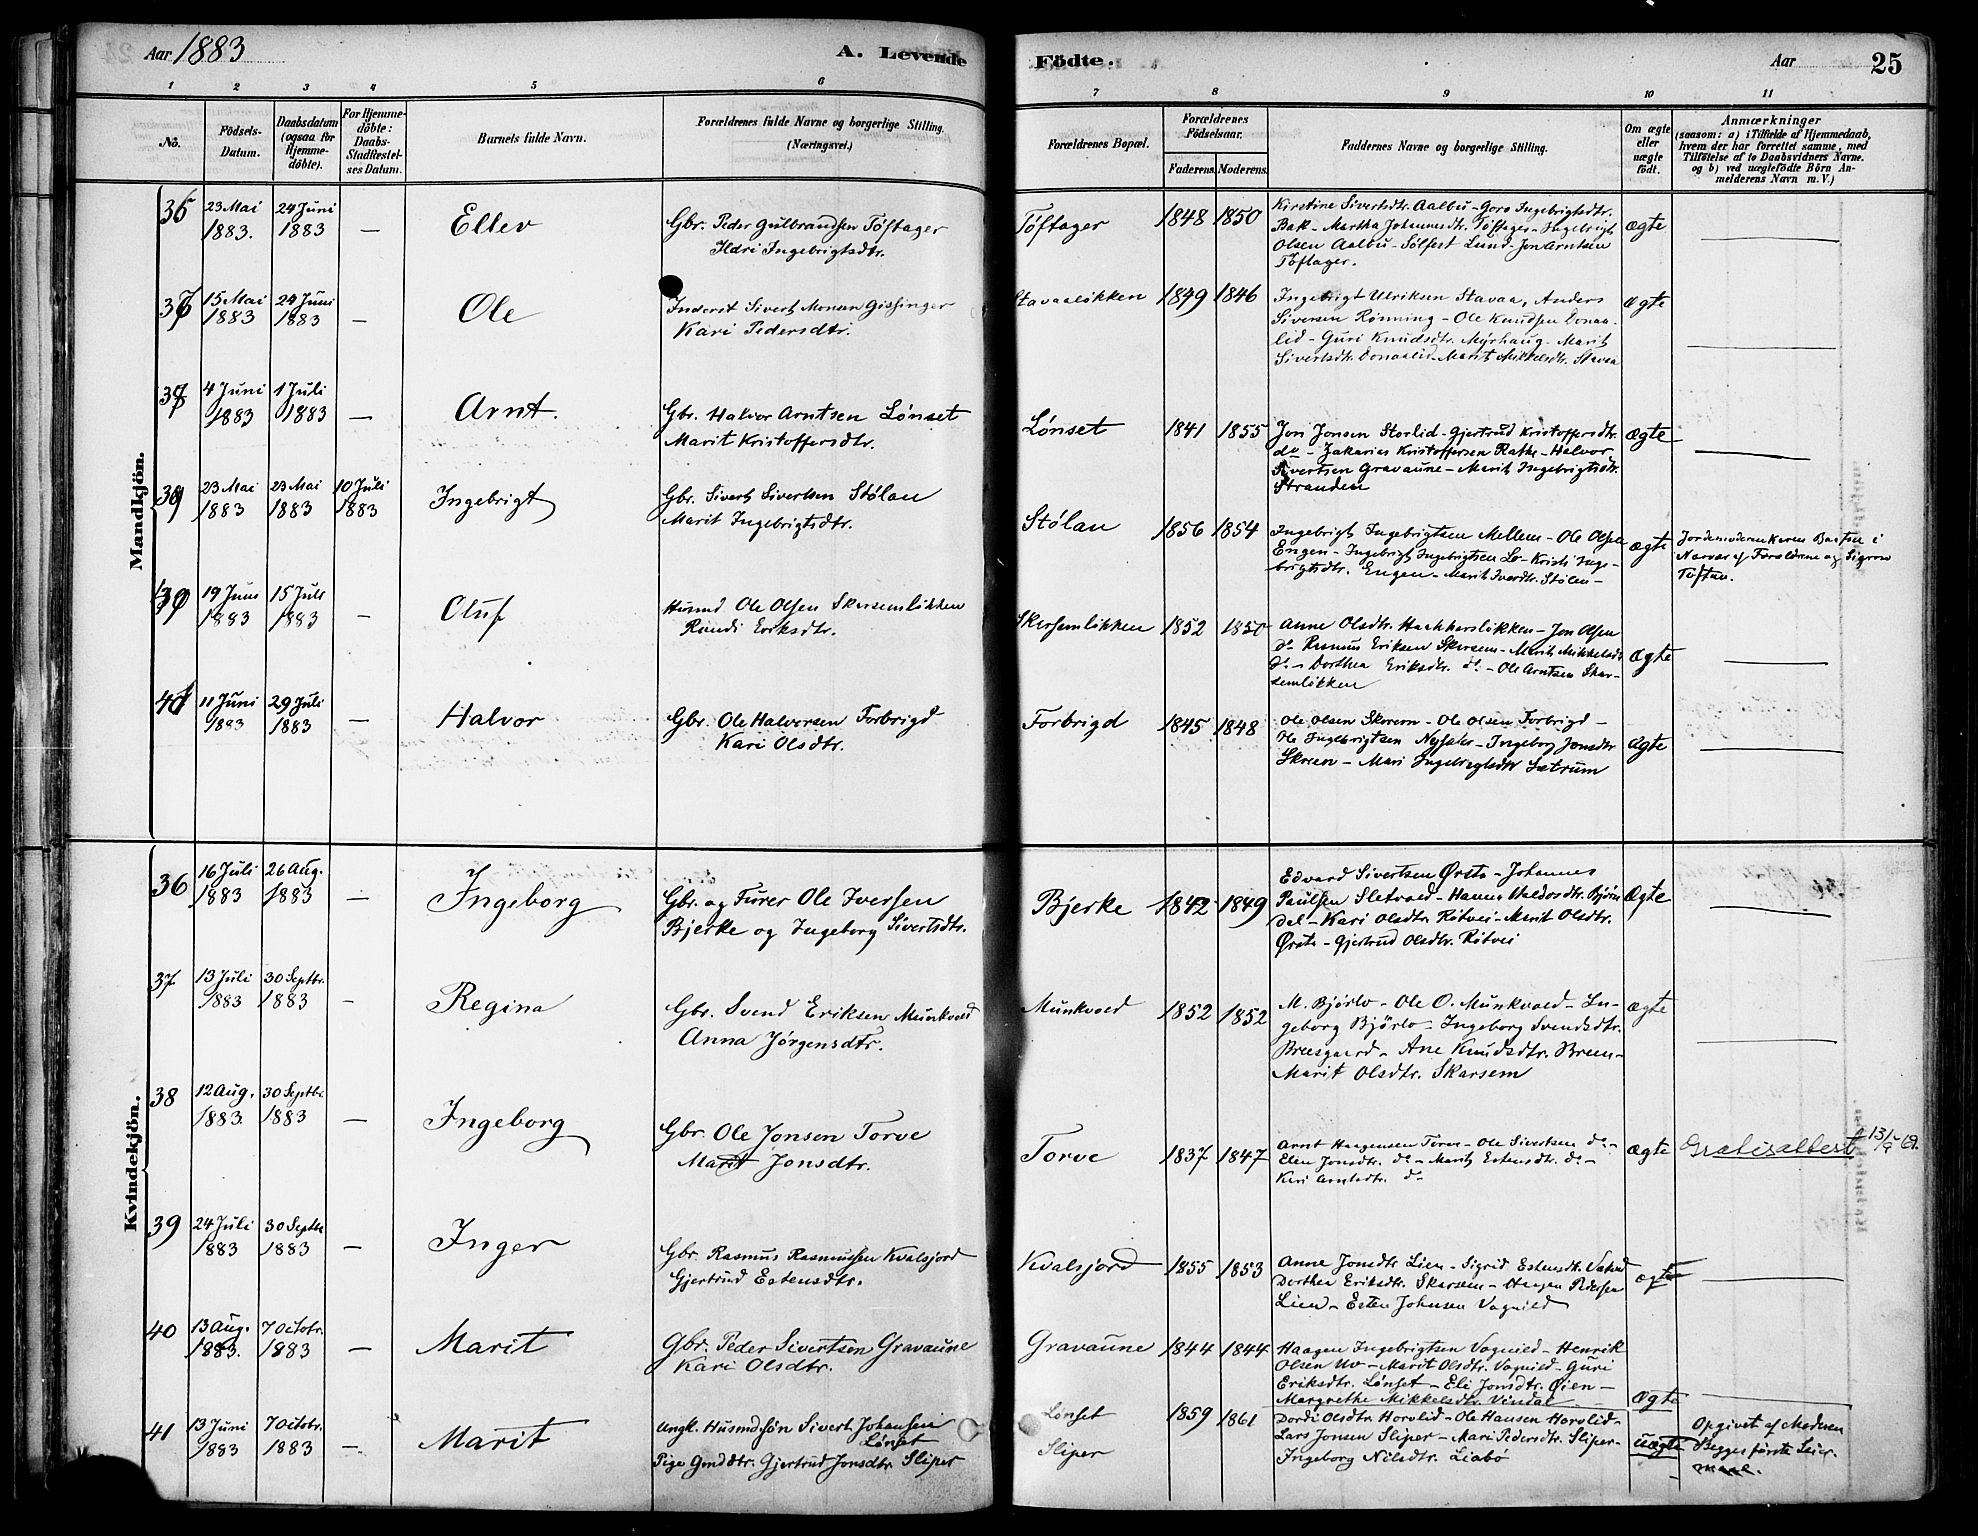 Aar 1883
A. Levende
Födte.
Aar
25
1 2 3 4 5 6 7 8 9 10 11
No.
Födsels-
Datum.
Daabsdatum
(ogsaa for
Hjemme-
döbte).
For Hjemme-
döbte:
Daabs-
Stadfæstel-
ses Datum.
Barnets fulde Navn.
Forældrenes fulde Navne og borgerlige Stilling.
(Næringsvei.)
Forældrenes Bopæl.
Forældrenes
Födselsaar.
Faderens. Moderens.
Faddernes Navne og borgerlige Stilling.
Om ægte
eller
uægte
födt.
Anmærkninger
(saasom: a) i Tilfælde af Hjemmedaab,
hvem der har forrettet samme, med
Tilföielse af to Daabsvidners Navne.
og b) ved uægtefödte Börn An-
melderens Navn m. V.)
Mandkjön.
35
23 Mai
1883.
24 Juni
1883
—
Ellev
Gbr. Peder Gulbrandsen Töftager
Ildri Ingebrigtsdtr.
Töftager
1848 1850
Kirstine Sivertsdtr. Aalbu - Goro Ingebrigtsdtr.
Bak - Martha Johannesdtr. Töftager - Ingebrigt
Olsen Aalbu - Sölfest Lund - Jon Arntsen
Töftager.
ægte
15 Mai
1883
24 Juni
1883
—
Ole
Inderst Sivert Monsen Gissinger
Kari Pedersdtr.
Stavaalökken
1849 1846
Ingebrigt Ulriksen Stavaa, Anders
Siversen Rønning - Ole Knudsen Donaa-
lid - Guri Knudsdtr. Myrhaug - Marit
Sivertsdtr. Donaalid - Marit Mikkelsdtr. Stavaa
ægte
4 Juni
1883
1 Juli
1883
—
Arnt.
Gbr. Halvor Arntsen Lönset
Marit Kristoffersdtr.
Lönset
1841 1855
Jon Jonsen Storlid - Gjertrud Kristoffersdtr.
do - Zakarias Kristoffersen Rathe - Halvor
Sivertsen Gravaune - Marit Ingebrigtsdtr.
Stranden
ægte
23 Mai
1883
23 Mai
1883
10 Juli
1883
Ingebrigt
Gbr. Sivert Sivertsen Stølan
Marit Ingebrigtsdtr.
Stølan
1856 1854
Ingebrigt Ingebrigtsen Mellem - Ole Olsen
Engen - Ingebrigt Ingebrigtsen Lo - Kristi Inge-
brigtsdtr. Engen - Marit Iverdtr. Stölen -
ægte
Jordemoderen Karen i
Nærvær af Forældrene og
Toftan.
19 Juni
1883
15 Juli
1883
—
Oluf
Husmd Ole Olsen Skorsemlökken
Randi Eriksdtr.
Skorsemlökken
1852 1850
Anne Olsdtr. Haakkerlökken - Jon Olsen
do - Rasmus Eriksen Skorsem - Marit Mikkelsdtr
do - Dorthea Eriksdtr. do - Ole Arntsen Skor-
semlökken
ægte
11 Juni
1883
29 Juli
1883
—
Halvor
Gbr. Ole Halvorsen Forbrigd
Kari Olsdtr.
Forbrigd
1845 1848
Ole Olsen - Ole Olsen Forbrigd -
Ole Ingebrigtsen - Ingeborg Jonsdtr
- Mari Ingebrigtsdtr Sætrum
ægte
Kvindekjön.
36
16 Juli
1883
26 Aug.
1883
—
Ingeborg
Gbr. og Furer Ole Iversen
Bjerke og Ingeborg Sivertsdtr.
Bjerke
1842 1849
Edvard Sivertsen Ørsta - Johannes
Paulsen Sletvold - Hanna Haldorsdtr. Bjørn
dal - Kari Olsdtr. Rötvei - Marit Olsdtr.
Ørsta - Gjertrud Olsdtr. Rötvei
ægte
37
13 Juli
1883
30 Septbr.
1883
—
Regina
Gbr. Svend Eriksen Munkvold
Anna Jörgensdtr.
Munkvold
1852 1852
M. Bjørlo - Ole O. Munkvold - In-
geborg Bjørlo - Ingeborg Svendsdtr.
Breesgaard - Ane Knudsdtr. Breen -
Marit Olsdtr. Skarsem
ægte
38
12 Aug.
1883.
30 Septbr.
1883
—
Ingeborg
Gbr. Ole Jonsen Torve
Marit Jonsdtr.
Torve
1837 1847
Arnt Haagensen Torve - Ole Sivertsen do -
Elen Jonsdtr. do - Marit Estensdtr. do -
Kari Arntsdtr. do
ægte
39
24 Juli
1883
30 Septbr
1883
—
Inger
Gbr. Rasmus Rasmussen Kvalsjord
Gjertrud Estensdtr.
Kvalsjord
1855 1853
Anne Jonsdtr Lien - Sigrid Estensdtr.
Dorthea Eriksdtr. Skarsem - Haagen Pedersen
Lien - Esten Johnsen Vognild
ægte
40
13 Aug.
1883.
7 Octobr.
1883
—
Marit
Gbr. Peder Sivertsen Gravaune
Kari Olsdtr.
Gravaune
1844 1844
Haagen Ingebrigtsen Vognild - Henrik
Olsen Uv - Marit Olsdtr. Vognild - Guri
Eriksdtr. Lönset - Eli Jonsdtr. Øien -
Margrethe Mikkelsdtr. Vindal
ægte
41
13 Juni
1883
7 Octobr.
1883
—
Marit
Ungk. Husmdsön Sivert Johansen
Lönset
Pige Gmddtr. Gjertrud Jonsdtr. Sliper
Lönset
Sliper
1859 1861
Dordi Olsdtr. Horvlid - Ole Hansen Horvlid -
Lars Jonsen Sliper - Mari Pedersdtr. Sliper -
Ingeborg Nilsdtr. Liabö
uægte
Opgivet af Moderen
Begges første Leier-
maal.